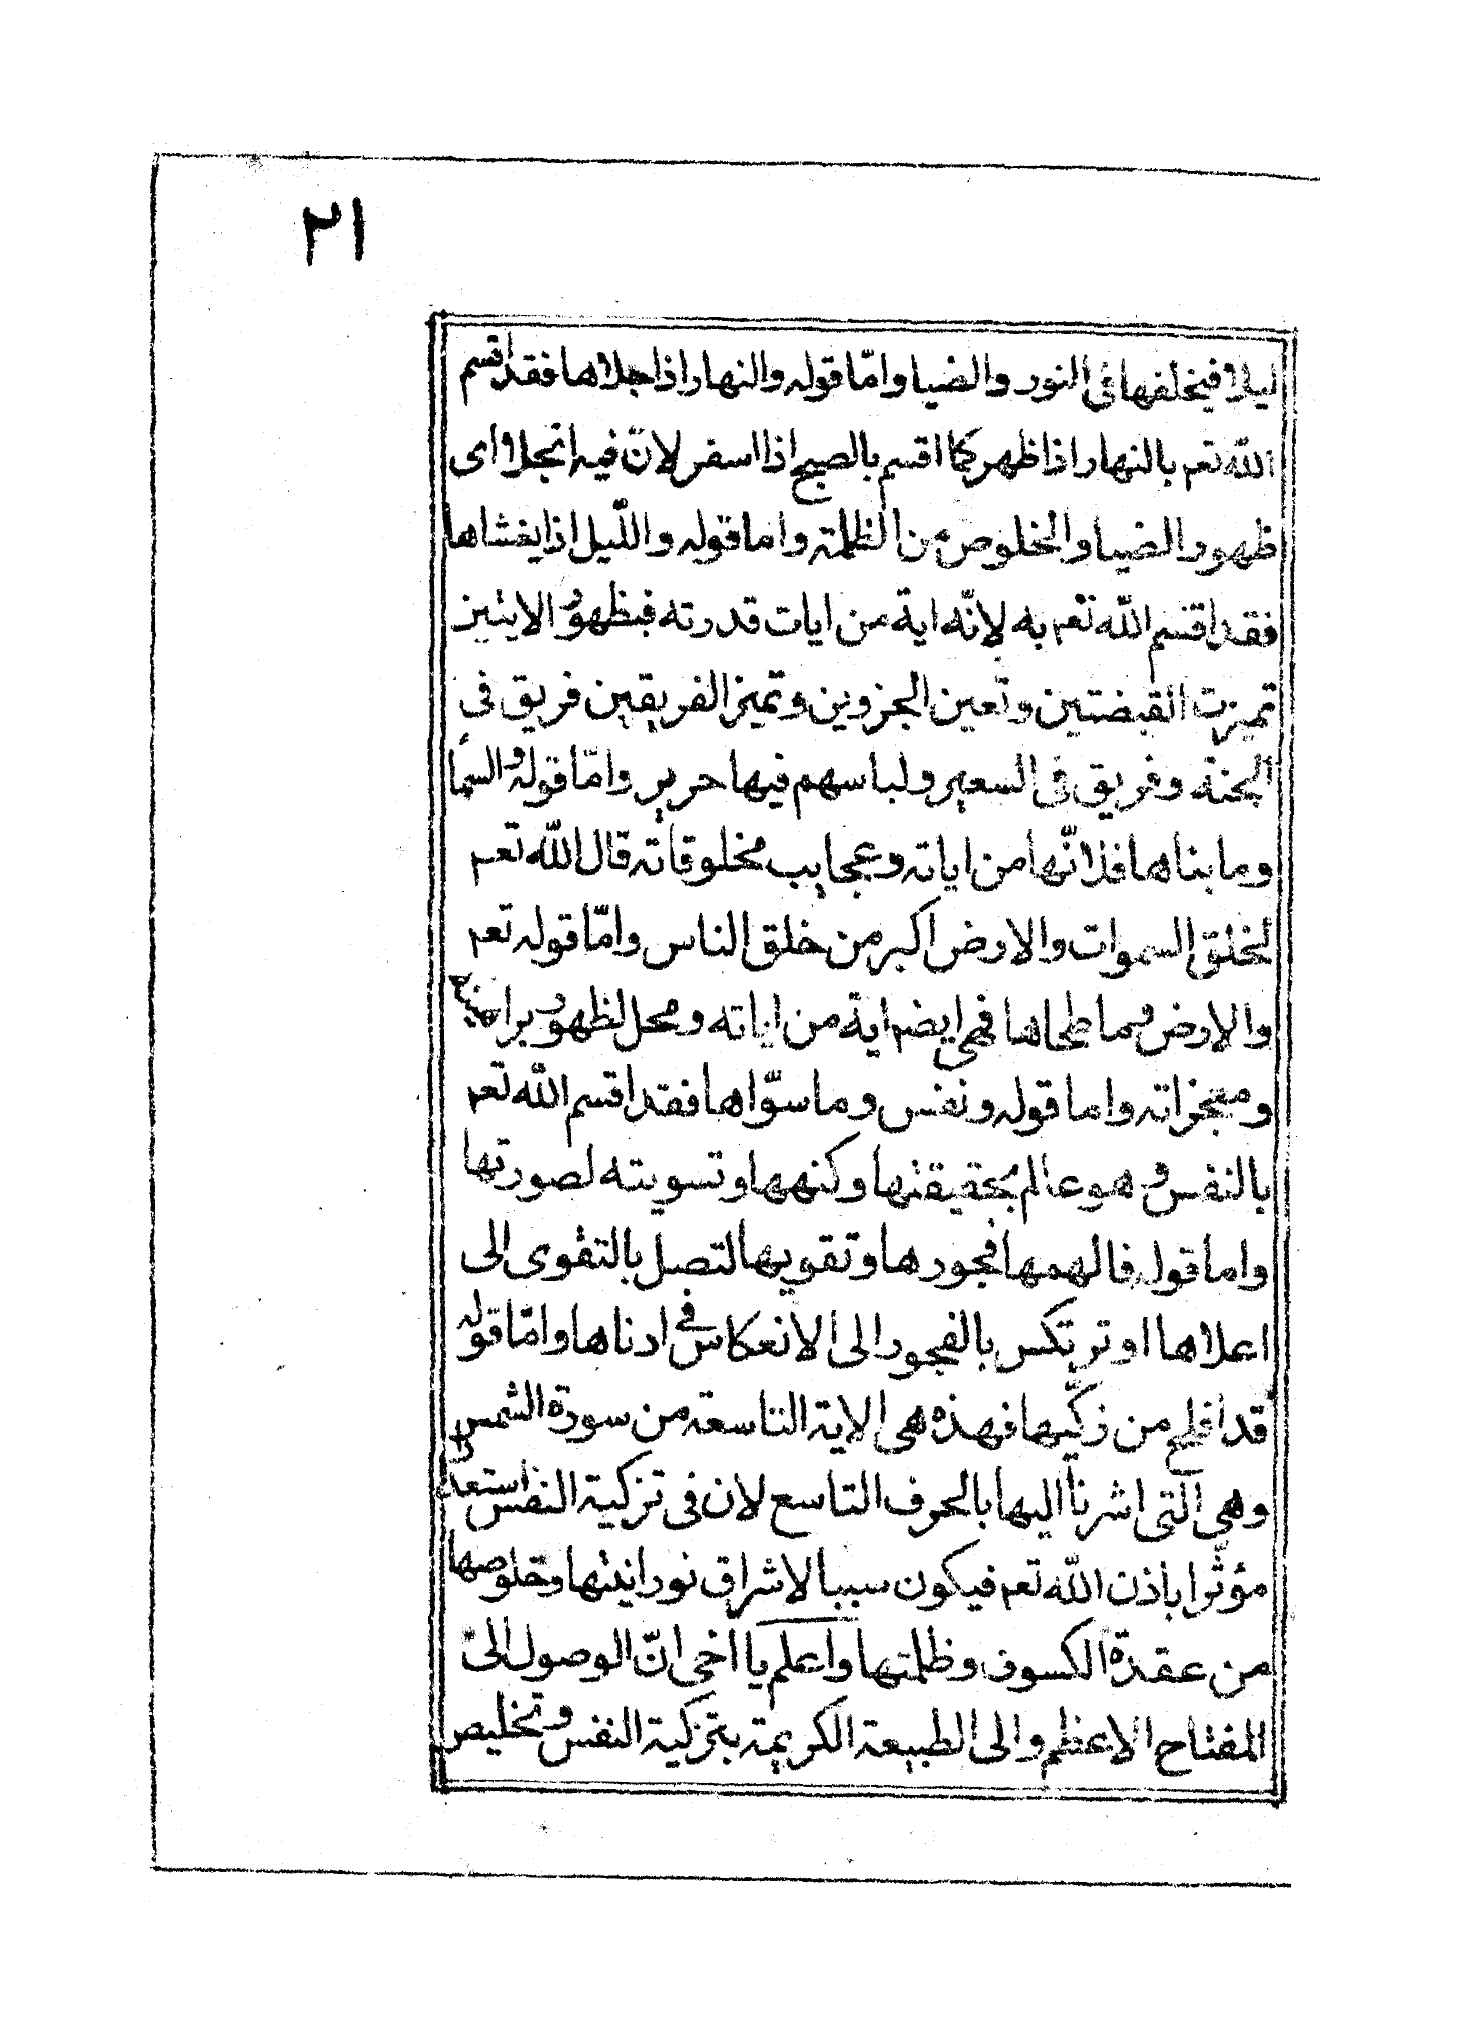 ٢١
ليلا فيخلفها في النور والضيا وامّا قوله والنهار اذا جلاها فقد اقسم
الله تعم بالنهار اذا ظهر كما اقسم بالصبح اذا اسفر لانّ فيه انجلاوا اى
ظهور الضيا والخلوص من الظلمة واما قوله واللّيل اذا يغشاها
فقد اقسم الله تعم به لانّه اية من ايات قدرته فبظهور الايتين
تميزت القبضتين وتعين الجزوين وتميز الفريقين فريق في
الجنة وفريق في السعير ولباسهم فيها حرير وامّا قوله والسمآ
وما بناها فلانّها من اياته وعجايب مخلوقاته قال الله تعم
لخلق السموات والارض اكبر من خلق الناس وامّا قوله تعم
والارض وما طحاها فهى ايضم اية من اياته ومحل لظهور براهينه
ومعجزاته واما قوله ونفس وما سوّاها فقد اقسم الله تعم
بالنفس وهو عالم بحقيقتها وكنهها وتسويته لصورتها
واما قوله فالهمها فجورها وتقويها لتصل بالتقوى الى
اعلاها او ترتكس بالفجور الى الانعكاس في ادناها وامّا قوله
قد افلح من زكّيها فهذه هى الاية التاسعة من سورة الشمس
وهى التى اشرنا اليها بالحرف التاسع لان في تزكية النفس استعدادا
مؤثّرا باذن الله تعم فيكون سببا لاشراق نورانيتها وخلوصها
من عقدة الكسوف وظلمتها واعلم يا اخى انّ الوصول الى
المفتاح الاعظم والى الطبيعة الكريمة بتزكية النفس وتخليص